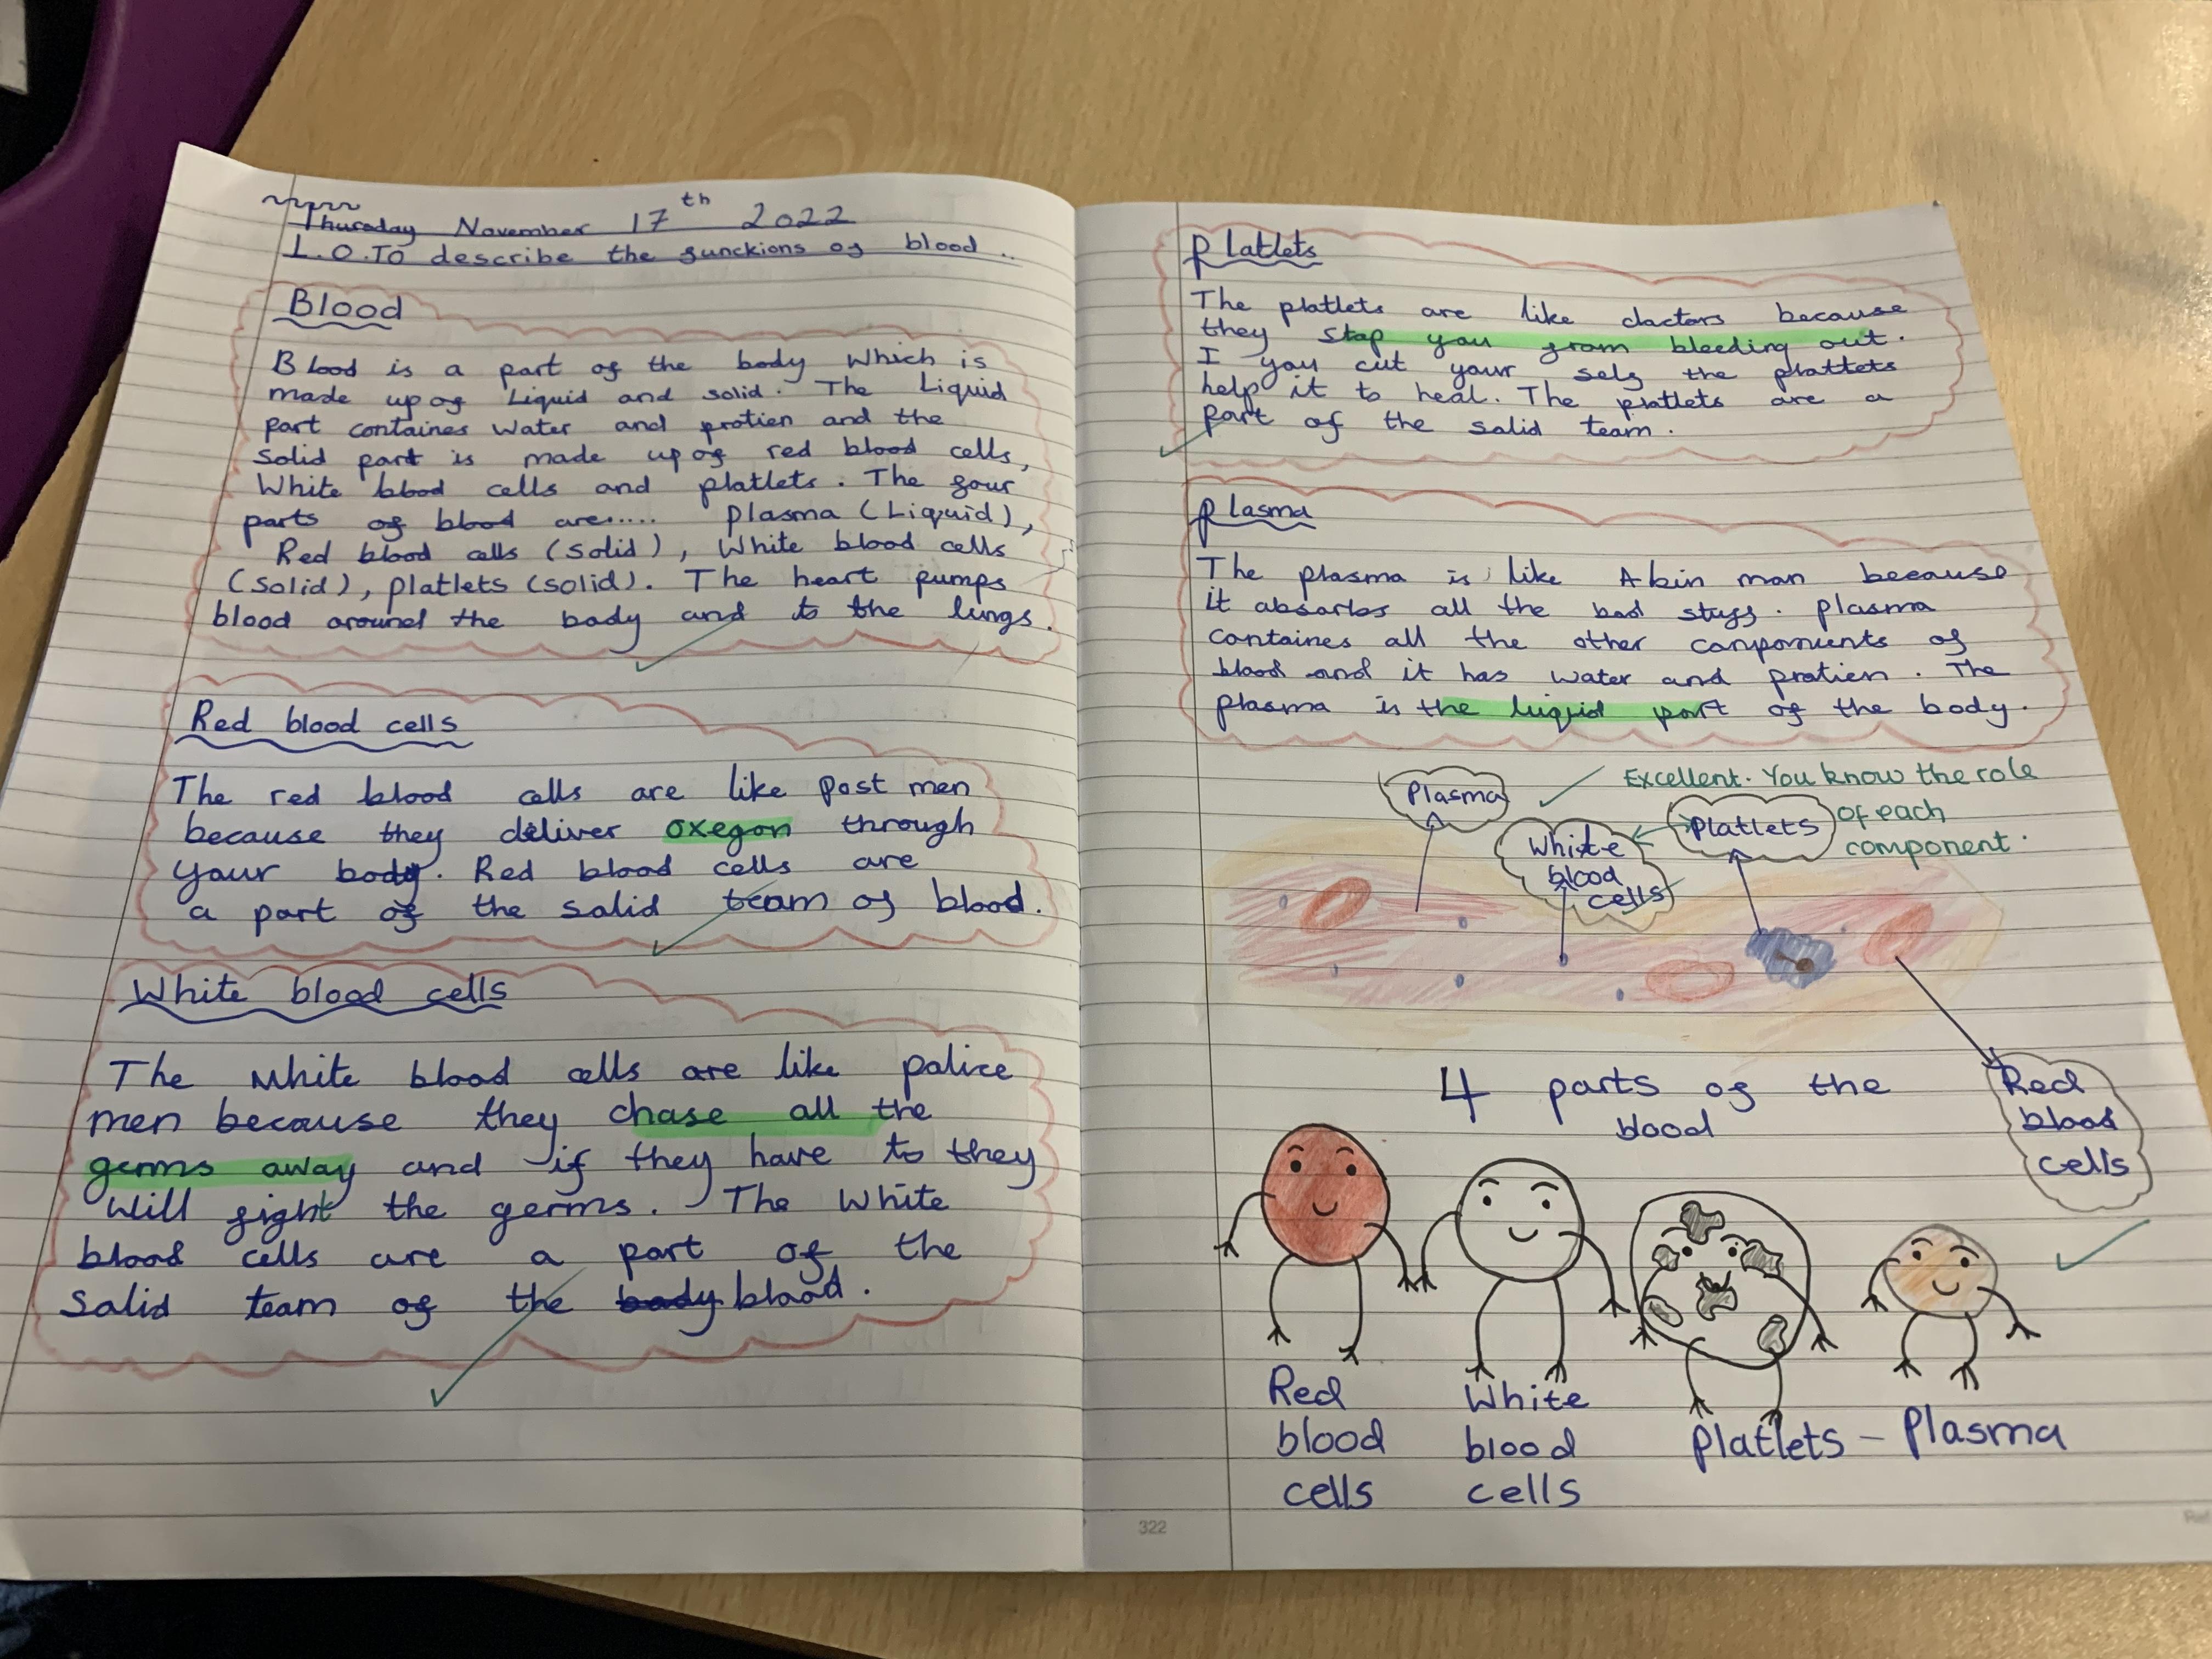 Thursday November 17th 2022
L.O.To describe the functions of blood..
Blood
Blood is a part of the body which is
made up of Liquid and solid. The Liquid
part containes water and protien and the
solid part is made up of red blood cells,
White blood cells and platlets. The four
parts of blood are..... Plasma (Liquid),
Red blood cells (solid), White blood cells
(solid), platlets (solid). The heart pumps
blood around the body and to the lungs.
Red blood cells
The red blood cells are like post men
because they deliver oxegon through
your body. Red blood cells are
a part of the solid team of blood.
White blood cells
The White blood cells are like police
men because they chase all the
germs away and if they have to they
will fight the germs. The White
blood cells are a part of the
Solid team of the body blood.
Platlets
The platlets are like doctors because
they stop you from bleeding out.
I you cut your self the platlets
help it to heal. The platlets are a
part of the solid team.
Plasma
The plasma is like A bin man because
it absorbes all the bad stuff. Plasma
containes all the other components of
blood and it has water and protien. The
plasma is the liquid part of the body.
Plasma
Excellent. You know the role
of each
component.
White
blood
cells
Platlets
Red
blood
cells
4 parts of the
blood
Red
blood
cells
White
blood
cells
Platlets – Plasma
322